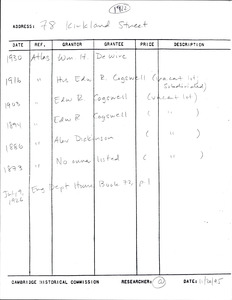 1912
ADDRESS: 78 Kirkland Street
DATE REF. GRANTOR GRANTEE PRICE DESCRIPTION
1930 Atlas Wm H. Dewire
1916 " Hrs Edw R. Cogswell (vacant lot;
1903 " Edw R. Cogswell (vacant lot)
1894 " Edw R Cogswell ( " )
1886 " Alex Dickinson ( " )
1873 " No owner listed ( " )
July 9, 1926 Eng Dept House Book 33, p 1
CAMBRIDGE HISTORICAL COMMISSION RESEARCHER: DATE: